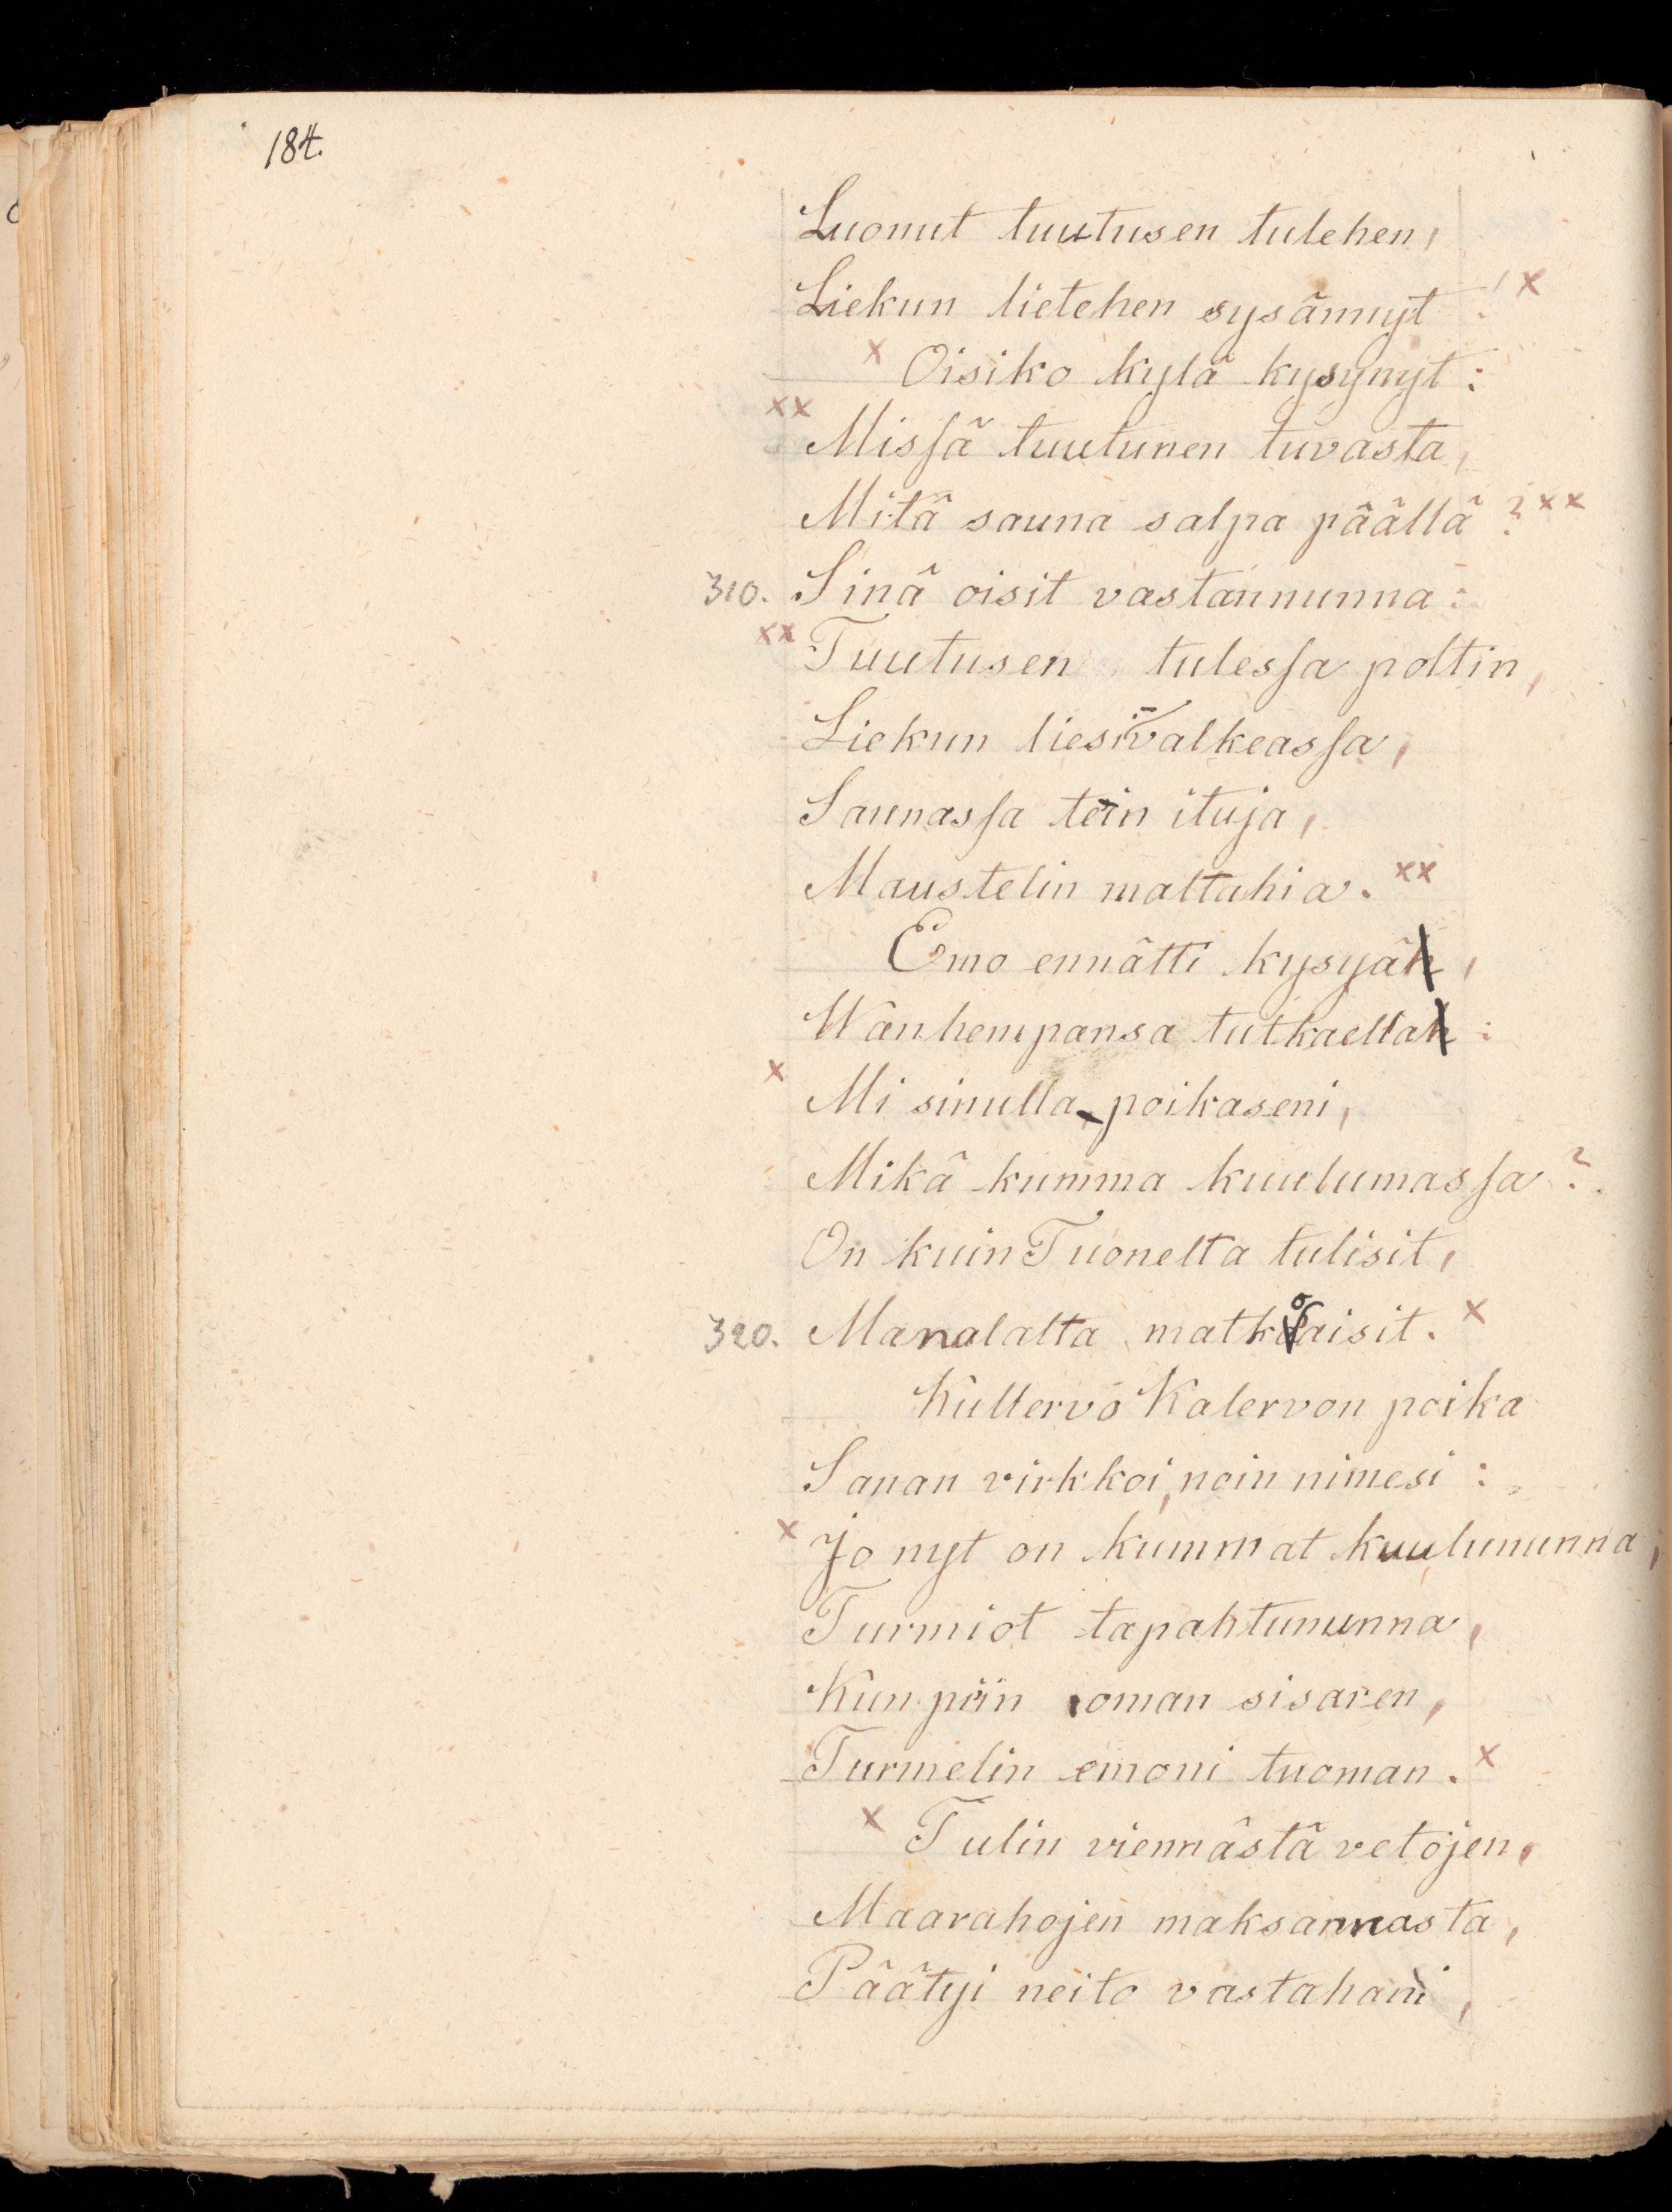 184.
Luonut tuutusen tulehen,
Liekun lietehen sysännyt! x
x Oisiko kylä kysynyt:
xx Missä tuutunen tuvasta,
Mitä sauna salpa päällä? xx
310. Sinä oisit vastannunna:
xx Tuutusen tulessa poltin,
Liekun liesi-valkeassa,
Saunassa tein ituja,
Maustelin maltahia. xx
Emo ennätti kysyäh,
Wanhempansa tutkaellah:
x Mi sinulla poikaseni,
Mikä kumma kuulumassa?
On kuin Tuonelta tulisit,
320. Manalalta matkoaisit. x
Kullervo Kalervon poika
Sanan virkkoi, noin nimesi:
x Jo nyt on kummat kuulununna,
Turmiot tapahtununna,
Kun piin oman sisaren,
Turmelin emoni tuoman. x
x Tulin viennästä vetojen,
Maarahojen maksannasta,
Päätyi neito vastahani,